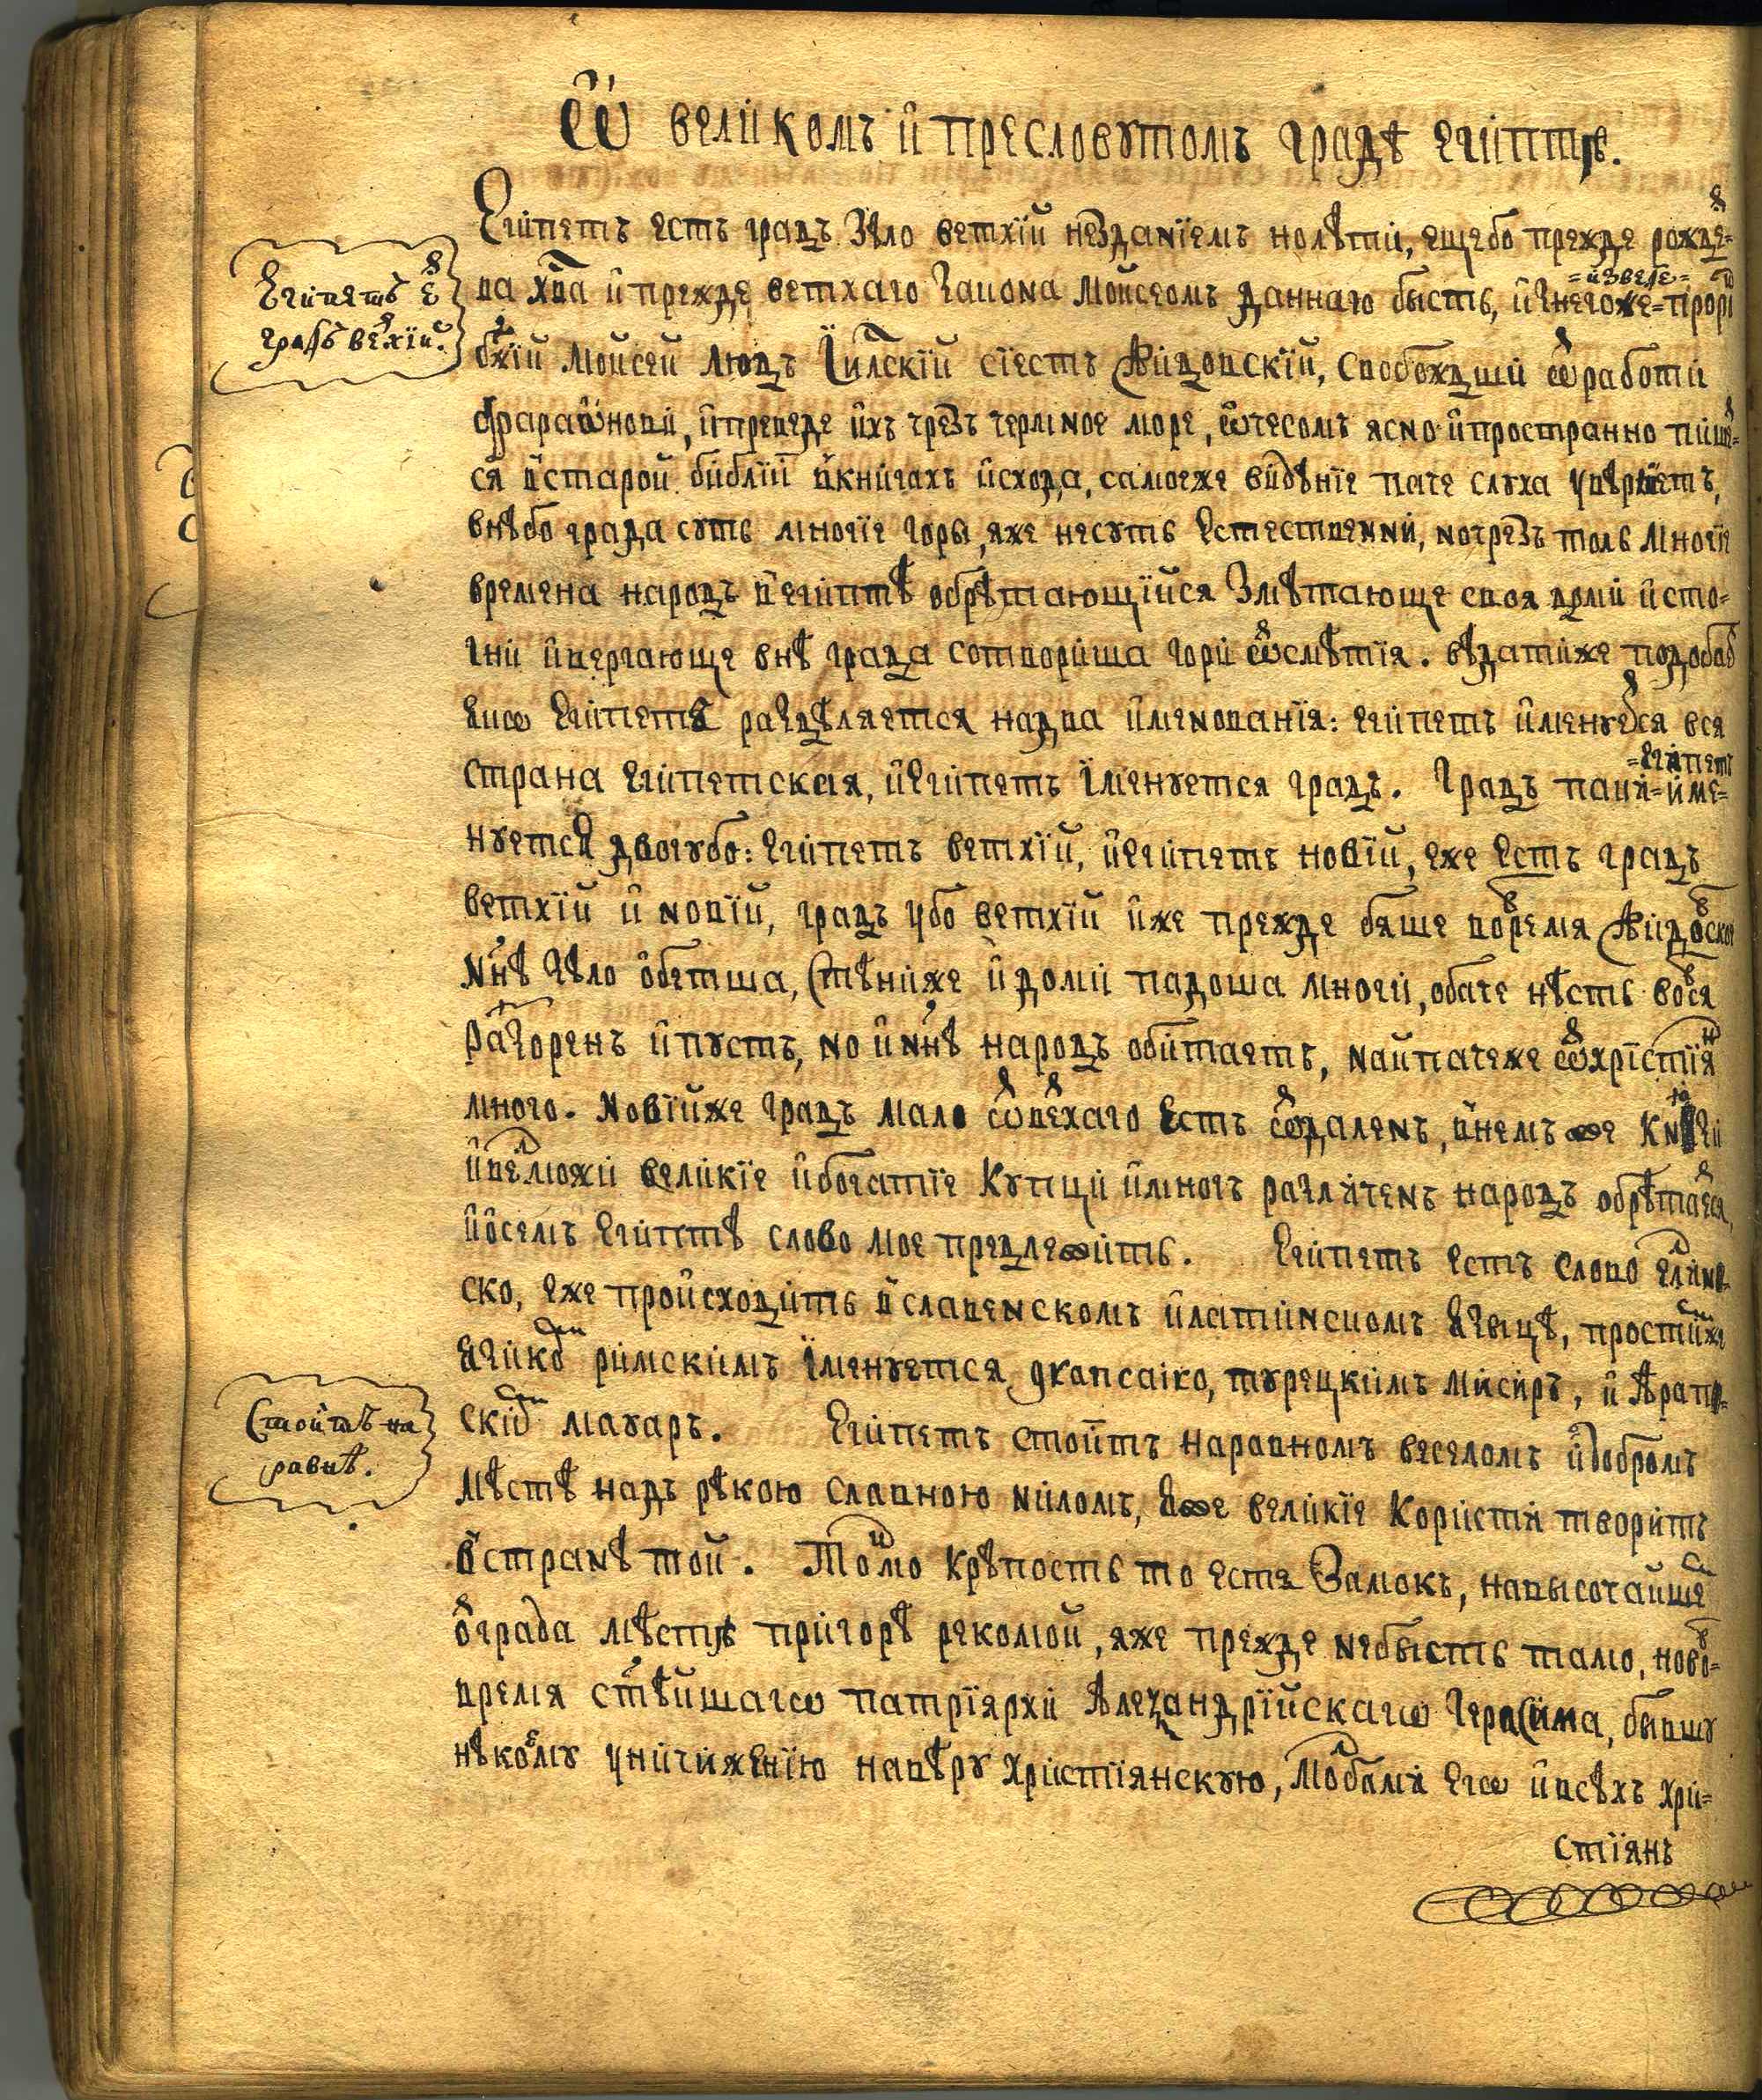 Ѽ великомъ и пресловутомъ градѣ египтѣ.
Египетъ естъ градъ зѣло ветхїй не зданїемъ но лѣти, еще бо прежде рожде-
ва хв҃а и прежде ветхаго закона Мойсеомъ даннаго бысть, и з него же =изведе= прорⷪ
Египетъ еⷭ
градъ веⷯхїй.
бж҃їй Мойсей людъ Ізр҃илскїй сїестъ жидовскїй, свобождши ѿ работи
фараѡнови, и преведе ихъ чрезъ чермное море, ѡ чесомъ ясно и пространно пише-
ся в старой библїи в книгахъ исхода, самое же видѣнїе паче слуха увѣряетъ,
внѣ бо града суть многїе горы, яже не суть естественни, но чрезъ толь многїе
времена народъ в египтѣ обрѣтающїйся змѣтающе своя доми и сто-
гни и вергающе внѣ града сотвориша гори ѿ смѣтїя. вѣдати же подобаеⷮ
яко Египетъ раздѣляется на два именованїя: египетъ именуеⷮся вся
страна египетская, и Египетъ їменуется градъ. Градъ паки =Египетъ= име-
нуется двогубо: египетъ ветхїй, и египетъ новїй, еже естъ градъ
ветхїй и новїй, градъ убо ветхїй иже прежде бяше во время жидоⷡское
нн҃ѣ зѣло обетша, стѣни же и доми падоша многи, обаче нѣсть воⷡся
разоренъ и пустъ, но и нн҃ѣ народъ обитаетъ, найпаче же ѿ хрїстїяⷩ
много. Новїй же градъ мало ѿ веⷮхаго естъ ѿдаленъ, в немъ же князи
и велможи великїе и богатїе купци и многъ различенъ народъ обрѣтаеⷮся,
и о семъ египтѣ слово мое предлежитъ. Египетъ естъ слово еллин-
ско, еже происходитъ в славенскомъ и латинскомъ языцѣ, простиⷨ же
язикоⷨ римскимъ їменуется grancairo, турецкимъ Мисиръ, и Арап-
скиⷨ магаръ. Египетъ стоитъ на равномъ веселомъ и добромъ
Стоитъ на
равнѣ.
мѣстѣ надъ рѣкою славною Ниломъ, яже великїе користи творитъ
в странѣ той. Тоⷦмо крѣпость то естъ Замокъ, на височайшеⷨ
ѿ града мѣстѣ при горѣ рекомой, яже прежде не бысть тамо, но во
время ст҃ѣйшагѡ патрїярхи Алеѯандрїйскагѡ Герасима, бившу
нѣкоему уничиженїю на вѣру христїянскую, молбами егѡ и всѣхъ хри-
стїянъ